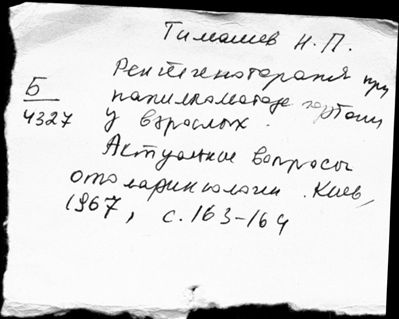 Тимашев Н.П.
Рентгенотерапия при
Б
4327
папилломатозе гортани
у взрослых.
Актуальные вопросы
отоларингологии. Киев,
1967, с. 163-164